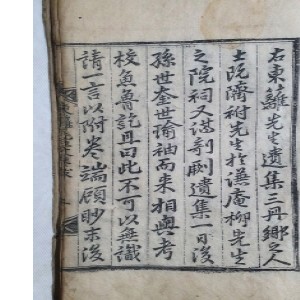 右東籬先生遺集三冊鄕之人
士旣隮祔先生於謙庵柳先生
之院祠又謀剞劂遺集一日後
孫世奎世瑜袖而來相與考
校魚魯訖且曰此不可以無識
請一言以附卷端顧眇末後